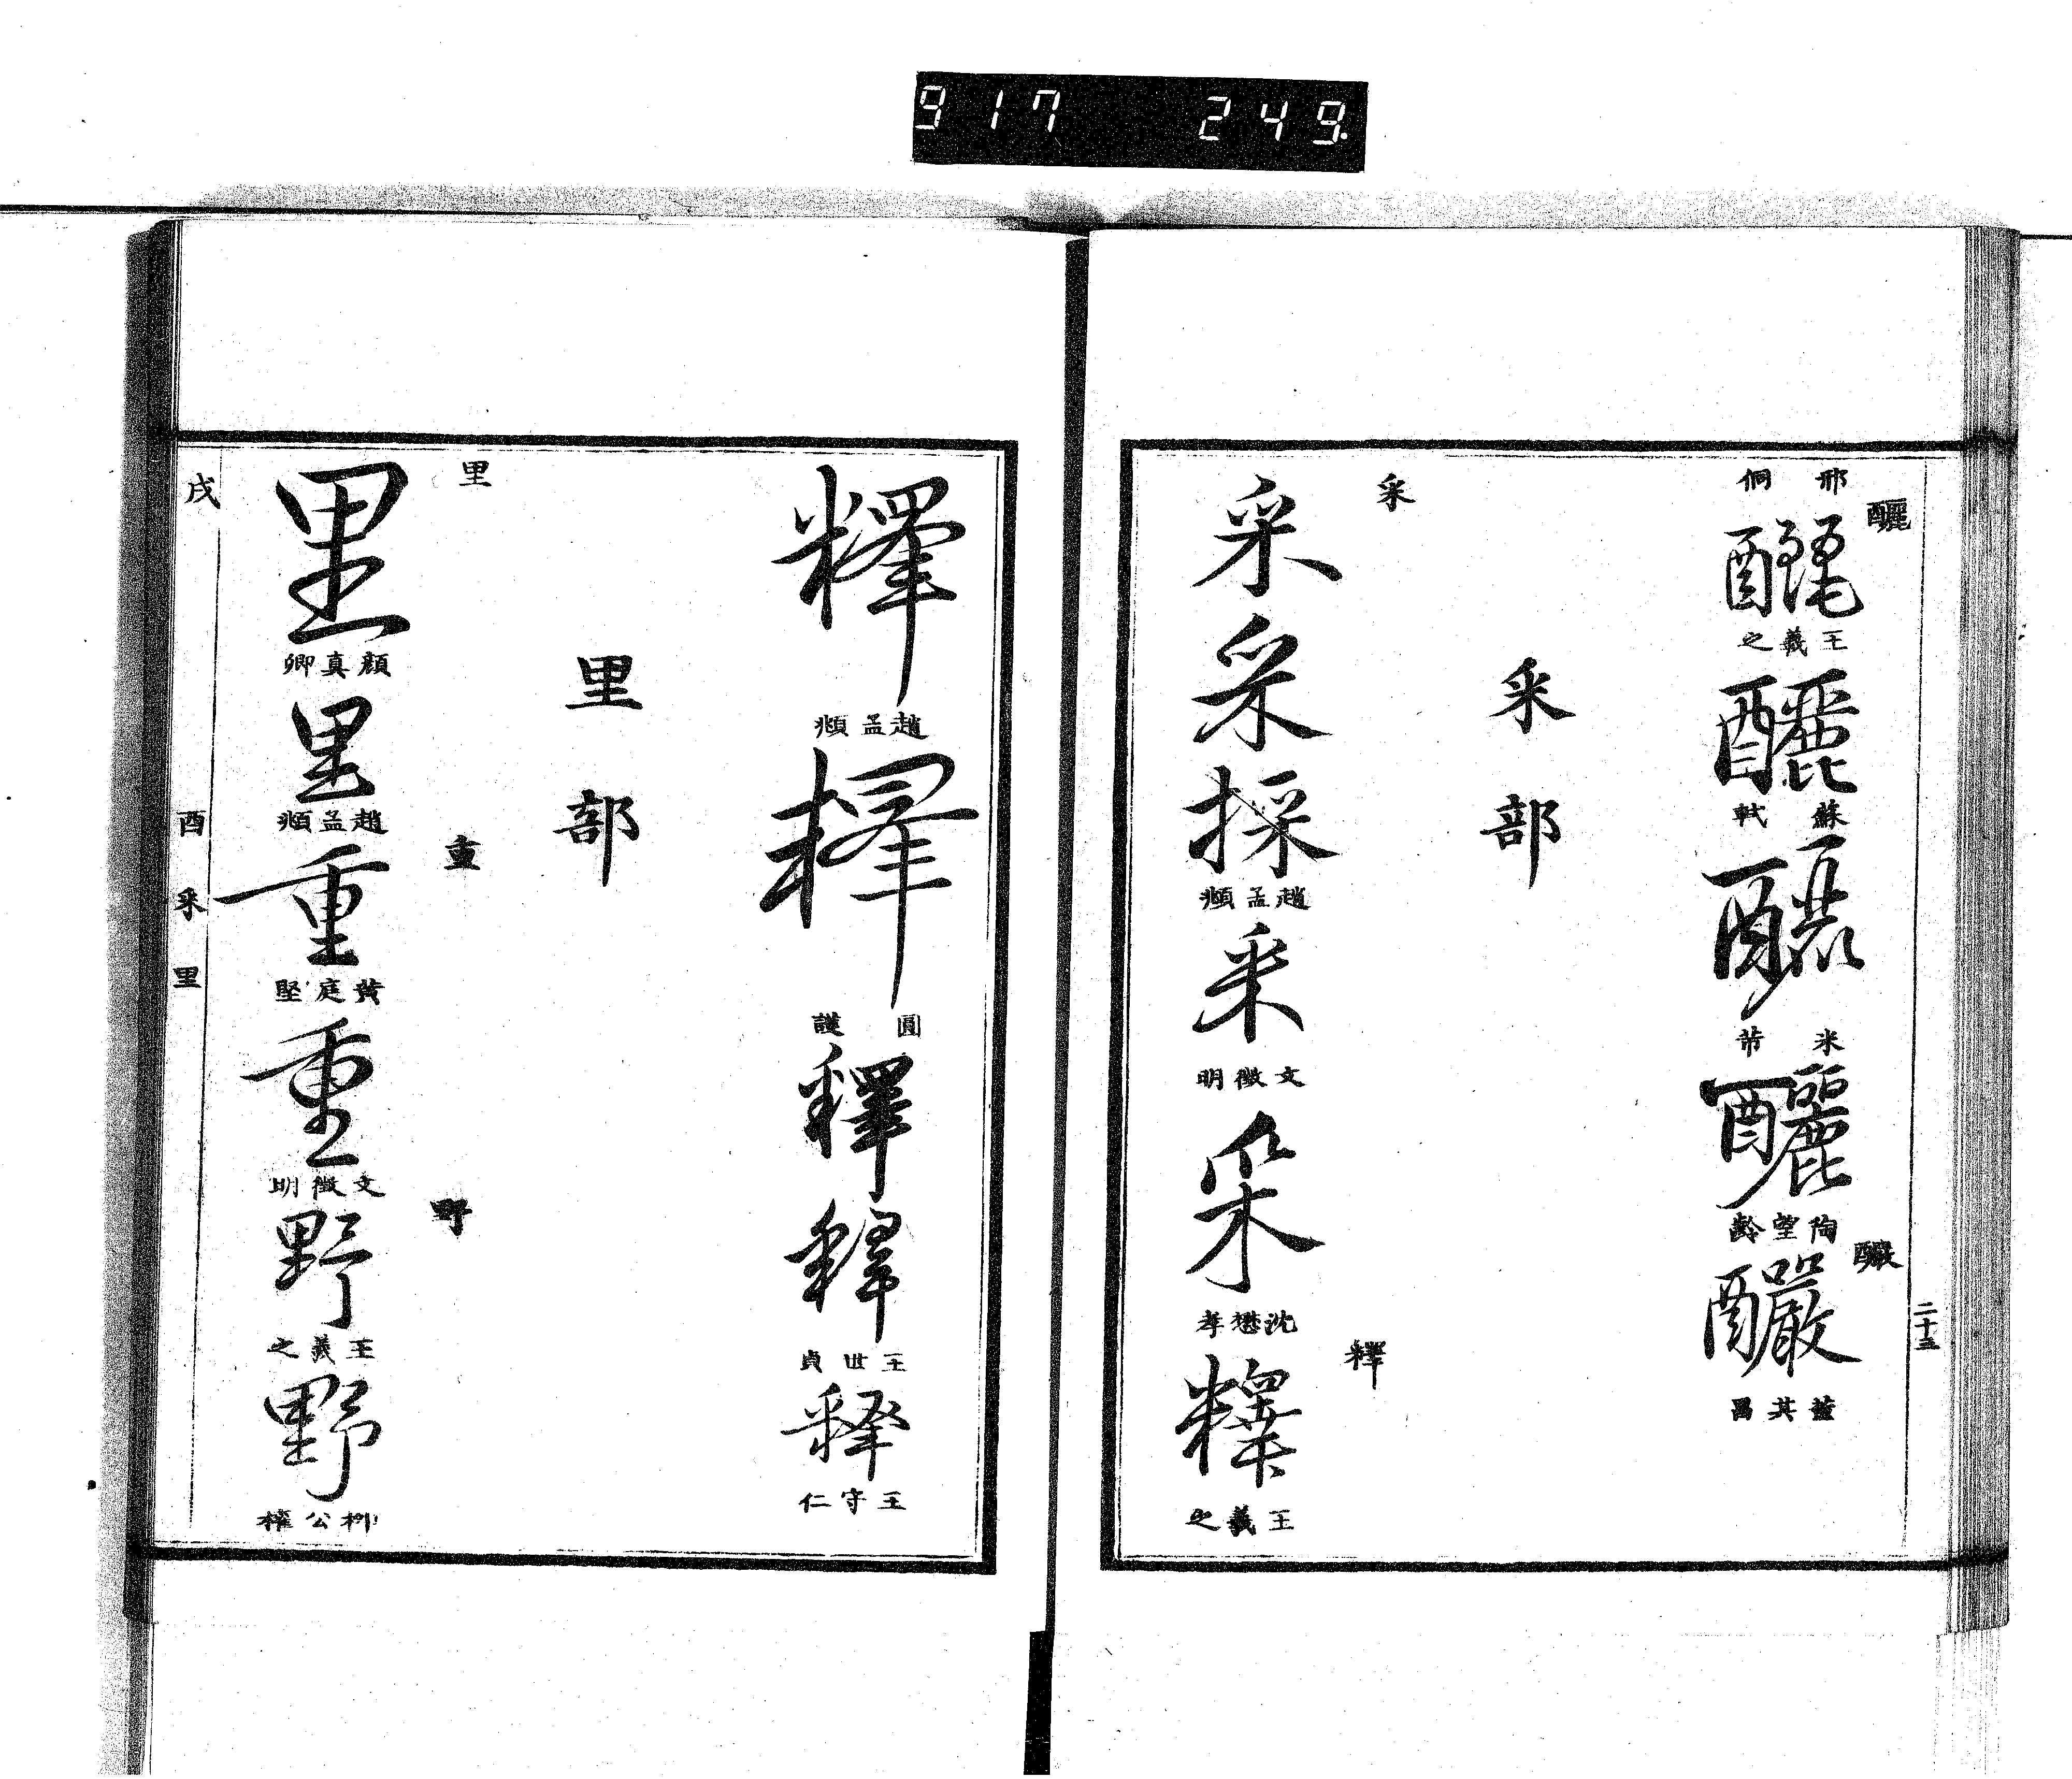 917 249.
釃
邢侗
釃
王羲之
釃
蘇軾
釃
米芾
釃
陶望齡
釅
釅
董其昌
二十五
釆部
采
采
采
採
趙孟頫
采
文徵明
采
沈懋孝
釋
釋
王羲之
釋
趙孟頫
釋
圓護
釋
釋
王世貞
釋
王守仁
里部
里
里
顏真卿
里
趙孟頫
重
重
黃庭堅
重
文徵明
野
野
王羲之
野
柳公權
戌
酉
釆
里